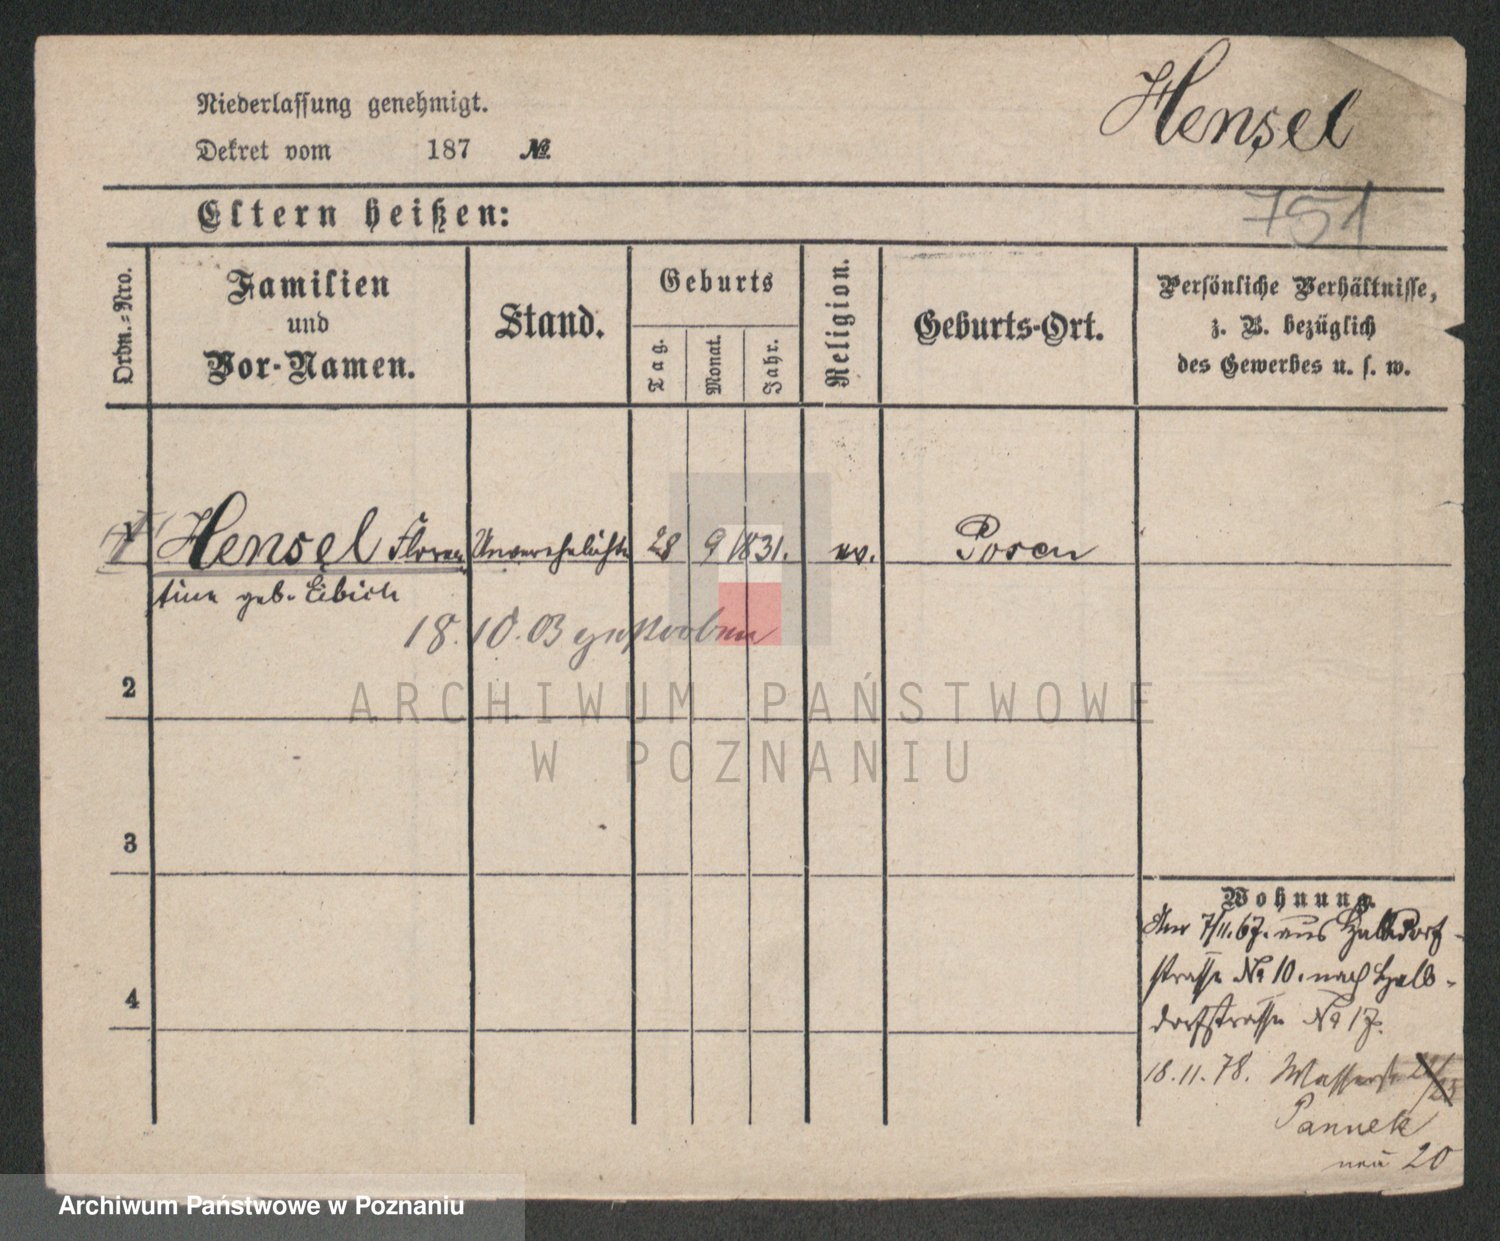 Niederlassung genehmigt.
Dekret vom 187 №
Hensel
751
Eltern heißen:
Ordn.-Nro.
Familien
und
Vor-Namen.
Stand.
Geburts
Tag.
Monat.
Jahr.
Religion.
Geburts-Ort.
Persönliche Verhältnisse,
z. B. bezüglich
des Gewerbes u. s. w.
1 Hensel Floren Unverehelichte 28 9 1831. ev. Posen
tine geb. Libich
18.10.03 gestorben
2
3
4
Wohnung.
7/11.67. aus Halbdorf-
strasse No 10. nach Halb-
dorfstrasse No 17.
18.11.78. Wasserstr
Pannek
neu 20
ARCHIWUM PAŃSTWOWE
W POZNANIU
Archiwum Państwowe w Poznaniu